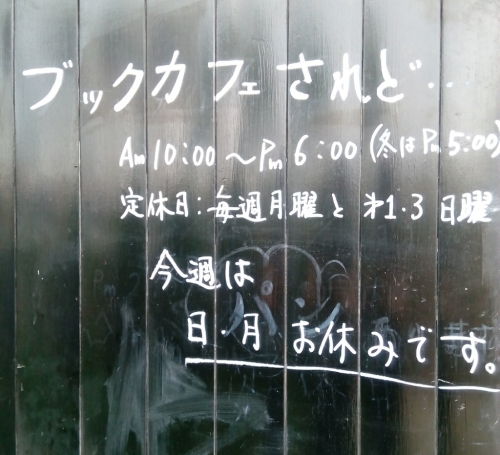 ブックカフェされど‥
Am10:00〜Pm6:00(冬はPm5:00)
定休日:毎週月曜と才1・3日曜
今週は
日・月お休みです。